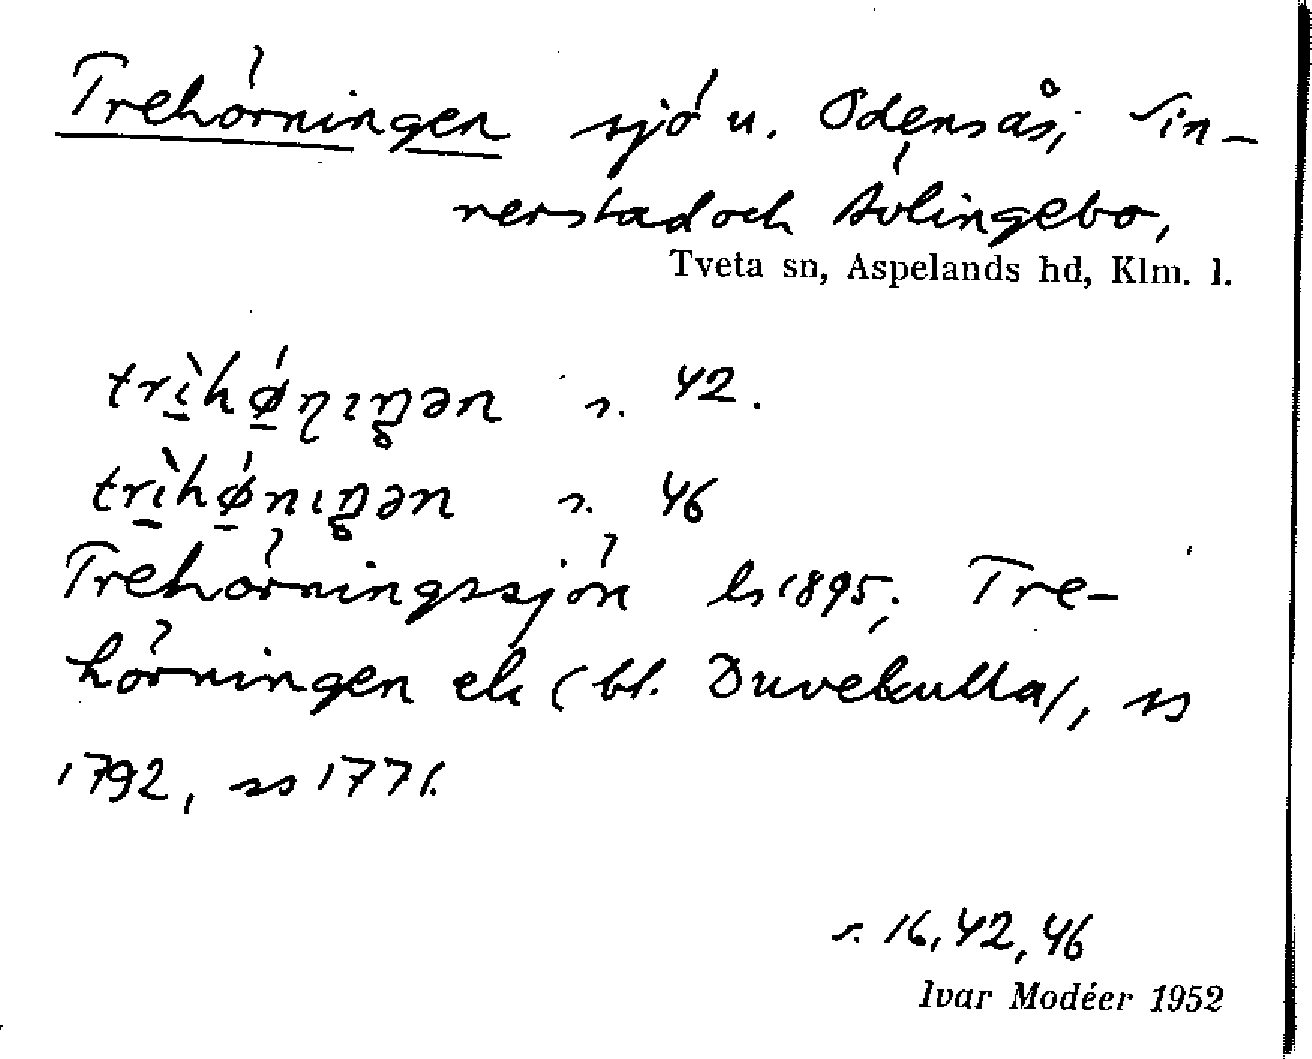 Trehörningen sjö u. Odensås, Sin-
nerstad och Åvlingebo,
Tveta sn, Aspelands hd, Klm. l.
trìhǿɳıŋən s. 42.
trìhǿnıŋən s. 46
Trehörningssjön ls 1895; Tre-
hörningen ek (bl. Duvekulla), ss
1792, ss 1771.
s. 16, 42, 46
Ivar Modéer 1952